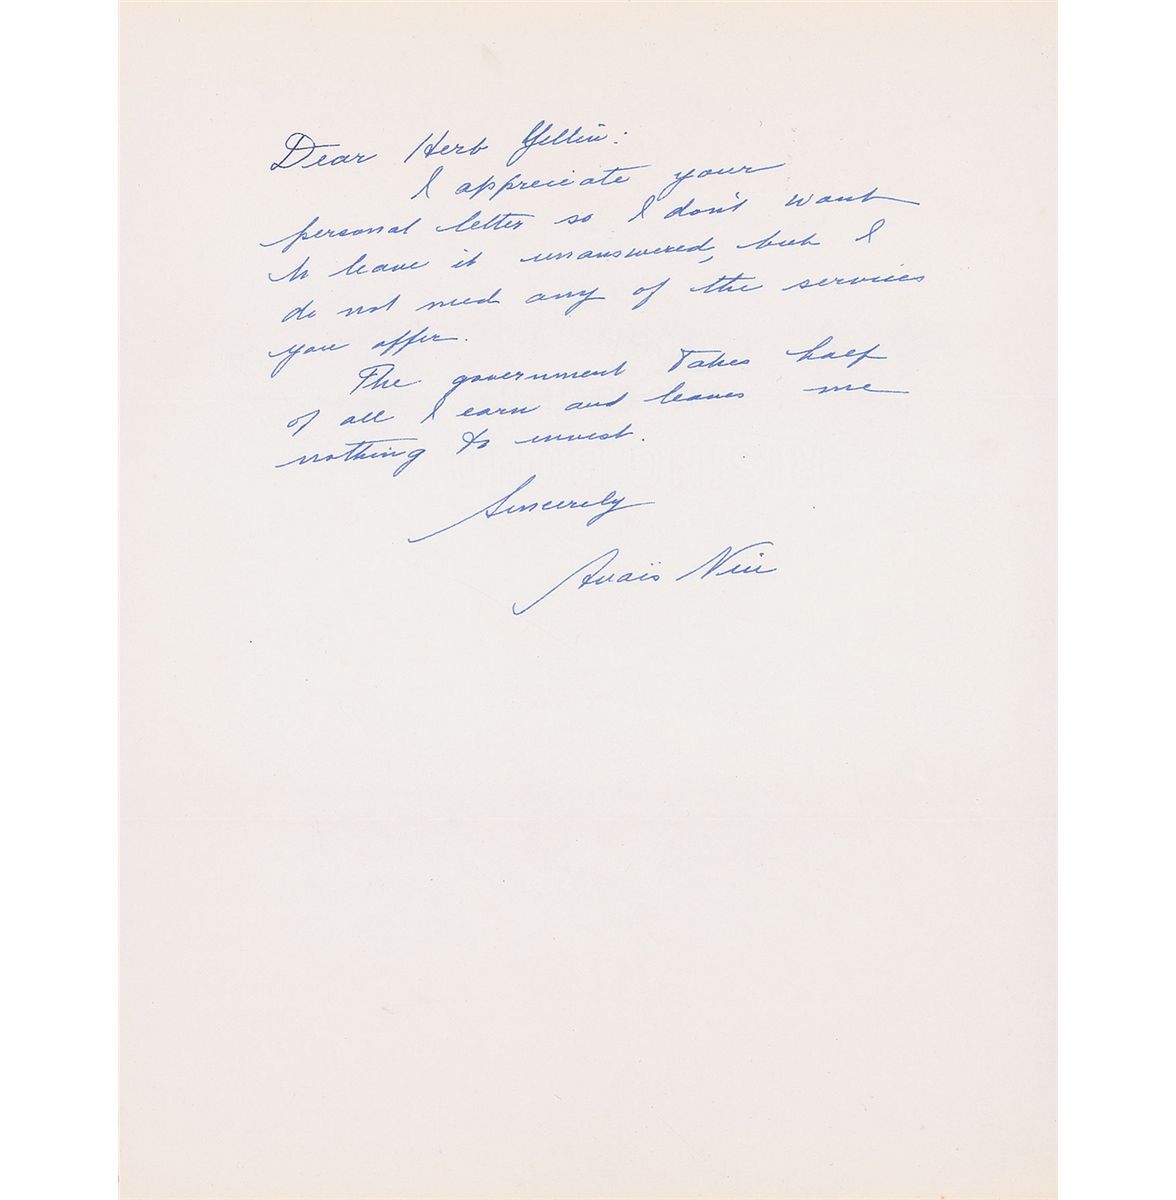 Dear Herb Yellin:
I appreciate your
personal letter so I don't want
to leave it unanswered, but I
do not need any of the services
you offer.
The government takes half
of all I earn and leaves me
nothing to invest.
Sincerely
Anaïs Nin